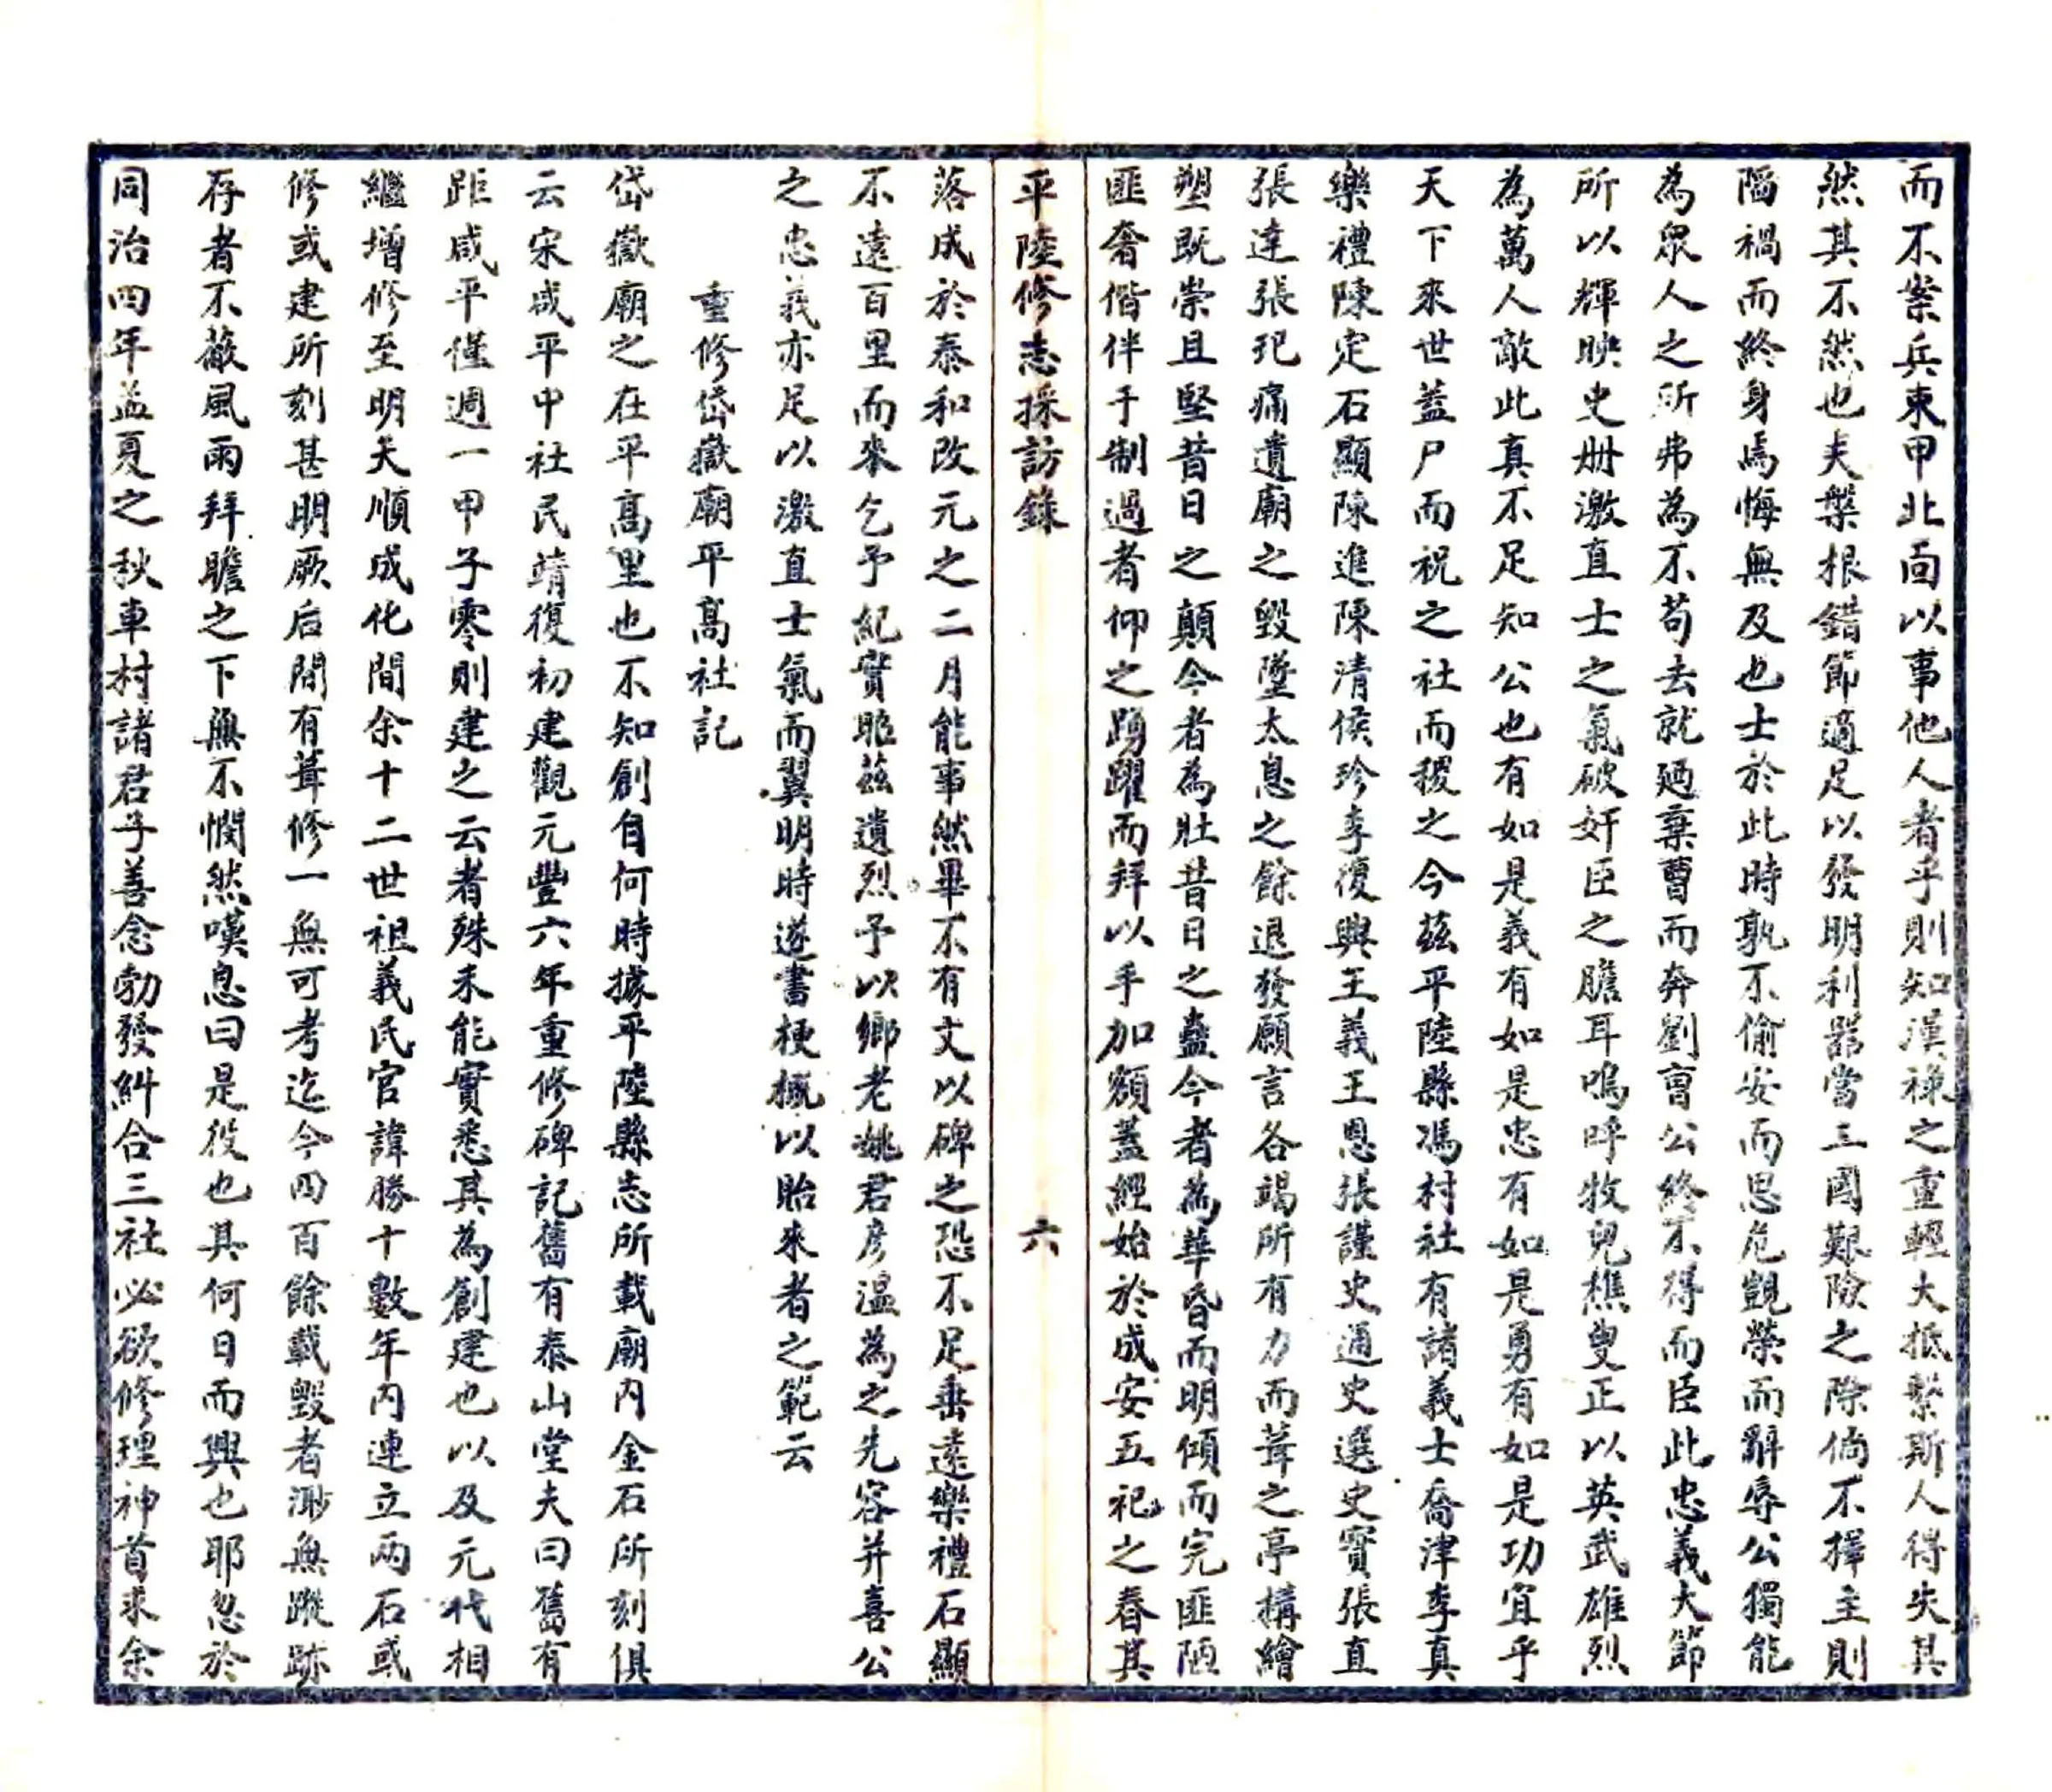 而不案兵束甲北面以事他人者乎則知漢祿之重輕大抵繫斯人得失其
然其不然也夫槃根錯節適足以發明利器當三國艱險之際倘不擇主則
陷禍而終身焉悔無及也士於此時孰不偷安而思危覬榮而辭辱公獨能
為眾人之所弗為不苟去就廼棄曹而奔劉曾公終不得而臣此忠義大節
所以輝映史册激直士之氣破奸臣之膽耳嗚呼牧兒樵叟正以英武雄烈
為萬人敵此真不足知公也有如是義有如是忠有如是勇有如是功宜乎
天下來世盖尸而祝之社而稷之今茲平陸縣馮村社有諸義士喬津李真
樂禮陳定石顯陳進陳清侯珍李復興王義王恩張謹史通史選史實張直
張達張玘痛遺廟之毀墮太息之餘退發願言各竭所有力而葺之亭搆繪
塑既崇且堅昔日之顛今者為壯昔日之蠱今者為華昏而明傾而完匪陋
匪奢偕伴于制過者仰之踴躍而拜以手加額蓋經始於成安五祀之春其
平陸修志採訪錄
六
落成於泰和改元之二月能事然畢不有文以碑之恐不足垂遠樂禮石顯
不遠百里而來乞予紀實昭茲遺烈予以鄉老姚君彥溫為之先容并喜公
之忠義亦足以激直士氣而翼明時遂書梗概以貽來者之範云
重修岱嶽廟平高社記
岱嶽廟之在平高里也不知創自何時據平陸縣志所載廟内金石所刻俱
云宋咸平中社民靖復初建觀元豐六年重修碑記舊有泰山堂夫曰舊有
距咸平僅週一甲子零則建之云者殊未能實悉其為創建也以及元代相
繼增修至明天順成化間余十二世祖義民官諱勝十數年内連立两石或
修或建所刻甚明厥后間有葺修一無可考迄今四百餘載毀者渺無蹤跡
存者不蔽風雨拜瞻之下無不憫然嘆息曰是役也其何日而興也耶忽於
同治四年孟夏之秋車村諸君子善念勃發糾合三社必欲修理神首求余